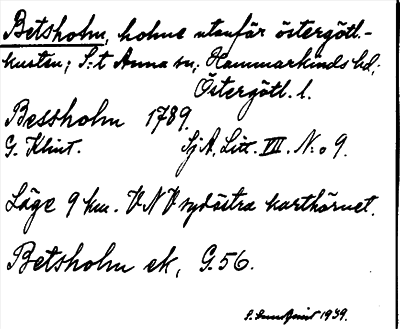 Betsholm, holme utanför östergötl.-
kusten; S:t Anna sn, Hammarkinds hd,
Östergötl. l.
Bessholm 1789.
G. Klint. Sj A, Litt. VII. N:o 9.
Läge 9 km. VNV sydöstra karthörnet.
Betsholm ek, G. 56.
1939.